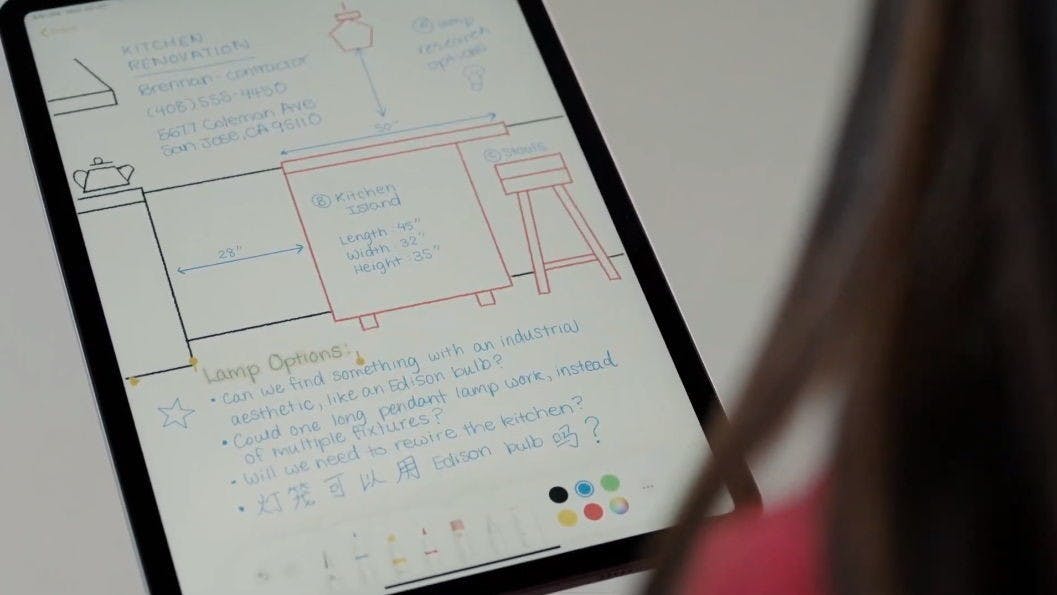 KITCHEN
RENOVATION
Brennan - contractor
(408) 555-4450
5677 Coleman Ave
San Jose, CA 95110
Ⓐ Lamp
research
options
50"
Ⓒ Stools
Ⓑ Kitchen
Island
Length: 45"
Width: 32"
Height: 35"
28"
Lamp Options:
• Can we find something with an industrial
aesthetic, like an Edison bulb?
• Could one long pendant lamp work, instead
of multiple fixtures?
• Will we need to rewire the kitchen?
• 灯笼可以用 Edison bulb 吗?